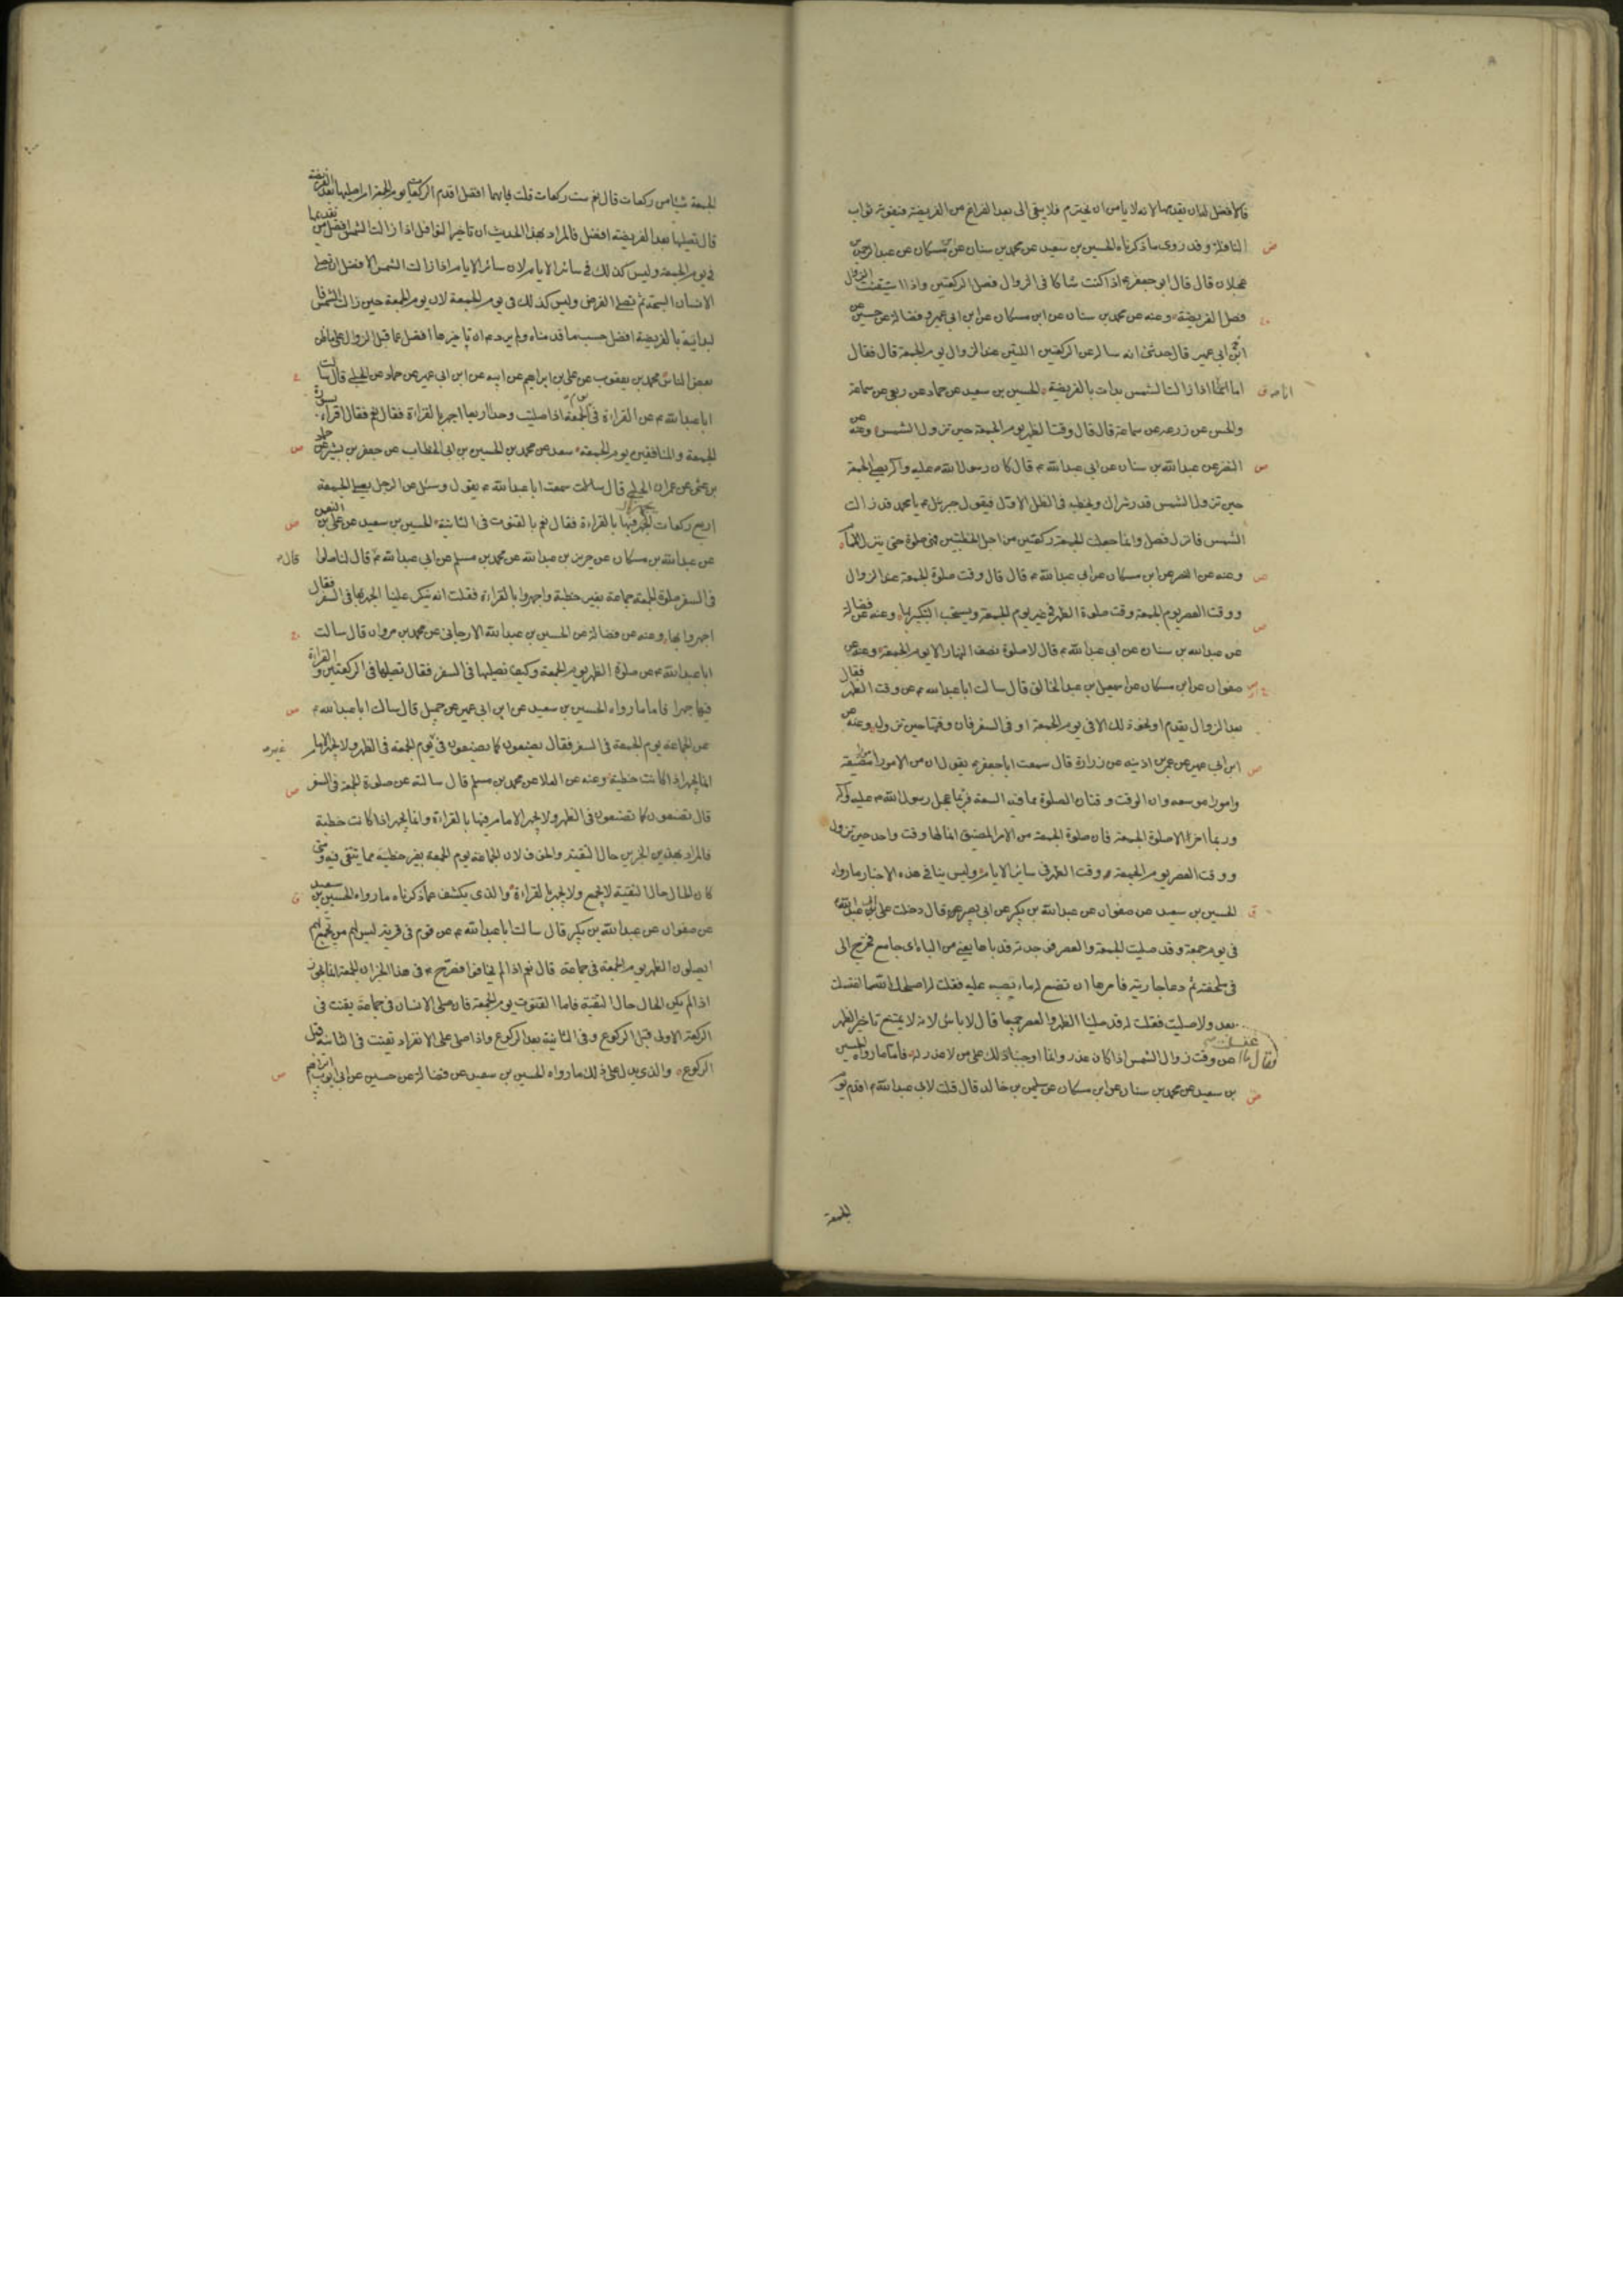 فالافضل له ان يقدمها لانه لا يامن ان يخترم فلا يبقى الى بعد الفراغ من الفريضة فيفوته ثواب
النافلة وقد روى ما ذكرناه الحسين بن سعيد عن محمد بن سنان عن ابن مسكان عن عبد الرحمن بن
عجلان قال قال ابو جعفر ع اذا كنت شاكا في الزوال فصل الركعتين واذا استيقنت الزوال
فصل الفريضة وعنه عن محمد بن سنان عن ابن مسكان عن ابن ابي عمير وفضالة عن حسين عن
ابن ابي عمير قال حدثني انه ساله عن الركعتين اللتين عند الزوال يوم الجمعة قال فقال
اما انا اذا زالت الشمس بدات بالفريضة الحسين بن سعيد عن حماد عن ربعي عن سماعة
والحسن عن زرعه عن سماعة قال قال وقت الظهر يوم الجمعة حين تزول الشمس وعنه عن
النضر عن عبد الله بن سنان عن ابي عبد الله ع قال كان رسول الله ص عليه واله يصلي الجمعة
حين تزول الشمس قدر شراك ويخطب في الظل الاول فيقول جبرئيل ع يا محمد قد زالت
الشمس فانزل فصل وانما جعلت الجمعة ركعتين من اجل الخطبتين فهي صلوة حتى ينزل الامام
وعنه عن النضر عن ابن مسكان عن ابي عبد الله ع قال قال وقت صلوة الجمعة عند الزوال
ووقت العصر يوم الجمعة وقت صلوة الظهر في غير يوم الجمعة ويستحب التكبير بها وعنه عن فضالة
عن عبد الله بن سنان عن ابي عبد الله ع قال لا صلوة نصف النهار الا يوم الجمعة وعنه عن
صفوان عن ابن مسكان عن اسمعيل بن عبد الخالق قال سالت ابا عبد الله ع عن وقت الظهر فقال
بعد الزوال بقدم او نحو ذلك الا في يوم الجمعة او في السفر فان وقتها حين تزول وعنه عن
ابن ابي عمير عن عمر بن اذينه عن زرارة قال سمعت ابا جعفر ع يقول ان من الامور امورا مضيقة
وامورا موسعه وان الوقت وقتان الصلوة مما فيه السعة فربما عجل رسول الله ص عليه واله
وربما اخر الا صلوة الجمعة فان صلوة الجمعة من الامر المضيق انما لها وقت واحد حين تزول
ووقت العصر يوم الجمعة وقت الظهر في سائر الايام وليس ينافي هذه الاخبار ما رواه
الحسين بن سعيد عن صفوان عن عبد الله بن بكير عن ابي بصير قال دخلت على ابي عبد الله ع
في يوم جمعة وقد صليت الجمعة والعصر فوجدته قد باها يعني من الباه اي جامع فخرج الي
في ملحفته ثم دعا جاريته فامرها ان تضع له ماء يصبه عليه فقلت له اصلحك الله ما اغتسلت
فقال ما اغتسلت بعد ولا صليت فقلت له قد صلينا الظهر والعصر جميعا قال لا باس لانه لا يمتنع تاخير الظهر
عن وقت زوال الشمس اذا كان عذر وانما اوجبنا ذلك على من لا عذر له فاما ما رواه الحسين
بن سعيد عن محمد بن سنان عن ابن مسكان عن سليمن بن خالد قال قلت لابي عبد الله ع اقدم يوم
الجمعة
الجمعة شيئا من ركعات قال نعم ست ركعات قلت فايهما افضل اقدم الركعات يوم الجمعة ام اصليها بعد الفريضة
قال تصليها بعد الفريضة افضل فالمراد بهذا الحديث ان تاخير النوافل اذا زالت الشمس افضل من تقديمها
في يوم الجمعة وليس كذلك في سائر الايام لان سائر الايام اذا زالت الشمس الافضل ان يصلي
الانسان السبحة ثم يصلي الفرض وليس كذلك في يوم الجمعة لان يوم الجمعة حين زالت الشمس فا
لبدائة بالفريضة افضل حسب ما قدمناه ولم يرد ع ان تاخيرها افضل عما قبل الزوال على ما ظن
بعض الناس محمد بن يعقوب عن علي بن ابراهيم عن ابيه عن ابن ابي عمير عن حماد عن الحلبي قال سالت
ابا عبد الله ع عن القراءة في يوم الجمعة اذا صليت وحدي اربعا اجهر بالقراءة فقال نعم فقال اقراء بسورة
الجمعة والمنافقين يوم الجمعة سعد عن محمد بن الحسين بن ابي الخطاب عن جعفر بن بشير عن حماد
بن عثمن عن عمران الحلبي قال سمعت ابا عبد الله ع يقول وسئل عن الرجل يصلي الجمعة
اربع ركعات ايجهر فيها بالقراءة فقال نعم بالقنوت في الثانية الحسين بن سعيد عن علي بن النعمن
عن عبد الله بن مسكان عن حريز بن عبد الله عن محمد بن مسلم عن ابي عبد الله ع قال قال لنا صلوا
في السفر صلوة الجمعة جماعة بغير خطبة واجهروا بالقراءة فقلت انه ينكر علينا الجهر بها في السفر فقال
اجهروا بها وعنه عن فضالة عن الحسين بن عبد الله الارجاني عن محمد بن مروان قال سالت
ابا عبد الله ع عن صلوة الظهر يوم الجمعة وكيف نصليها في السفر فقال تصليها في الركعتين والقراءة
فيها جهرا فاما ما رواه الحسين بن سعيد عن ابن ابي عمير عن جميل قال سالت ابا عبد الله ع
عن الجماعة يوم الجمعة في السفر فقال يصنعون كما يصنعون في غير يوم الجمعة في الظهر ولا يجهر الامام
انما يجهر اذا كانت خطبة وعنه عن العلا عن محمد بن مسلم قال سالته عن صلوة الجمعة في السفر
قال تصنعون كما تصنعون في الظهر ولا يجهر الامام فيها بالقراءة وانما يجهر اذا كانت خطبة
فالمراد بهذين الخبرين حال التقية والخوف لان الجماعة يوم الجمعة بغير خطبة مما يتقى فيه ومتى
كان الحال حال التقية لا يجمع ولا يجهر بالقراءة والذي يكشف عما ذكرناه ما رواه الحسين بن سعيد
عن صفوان عن عبد الله بن بكير قال سالت ابا عبد الله ع عن قوم في قرية ليس لهم من يجمع بهم
ايصلون الظهر يوم الجمعة في جماعة قال نعم اذا لم يخافوا فصرح ع في هذا الخبر ان الجمعة انما يجوز
اذا لم يكن الحال حال التقية فاما القنوت يوم الجمعة فان صلى الانسان في جماعة يقنت في
الركعة الاولى قبل الركوع وفي الثانية بعد الركوع واذا صلى على الانفراد يقنت في الثانية قبل
الركوع والذي يدل على ذلك ما رواه الحسين بن سعيد عن فضالة عن حسين عن ابي ايوب ابراهيم